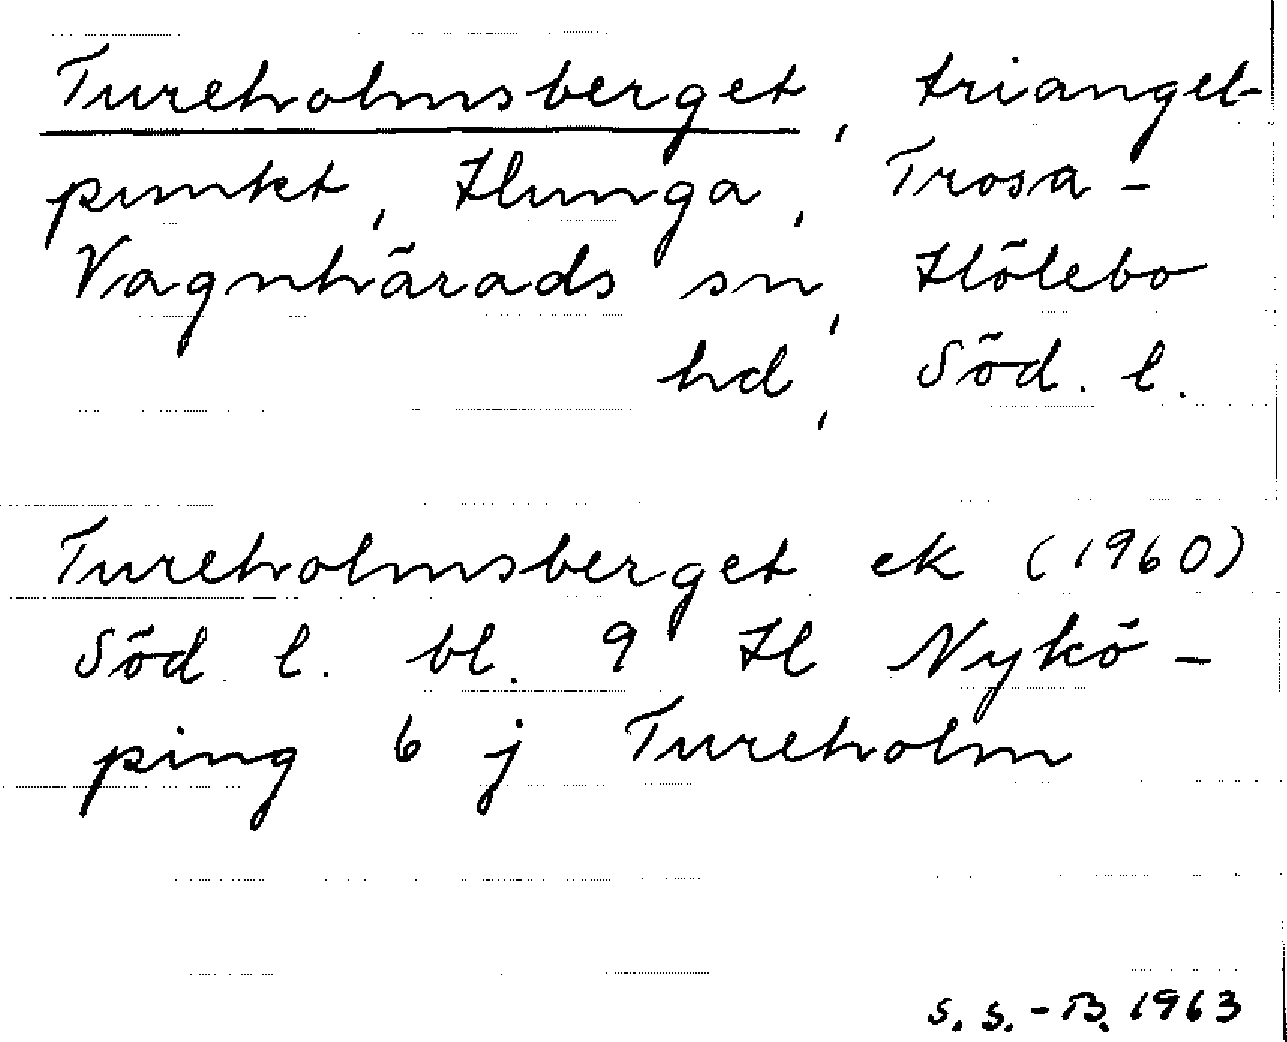 Tureholmsberget, triangel-
punkt, Hunga, Trosa-
Vagnhärads sn, Hölebo
hd, Söd. l.
Tureholmsberget ek (1960)
Söd. l. bl. 9 H Nykö-
ping 6 j Tureholm
S. S.-B. 1963